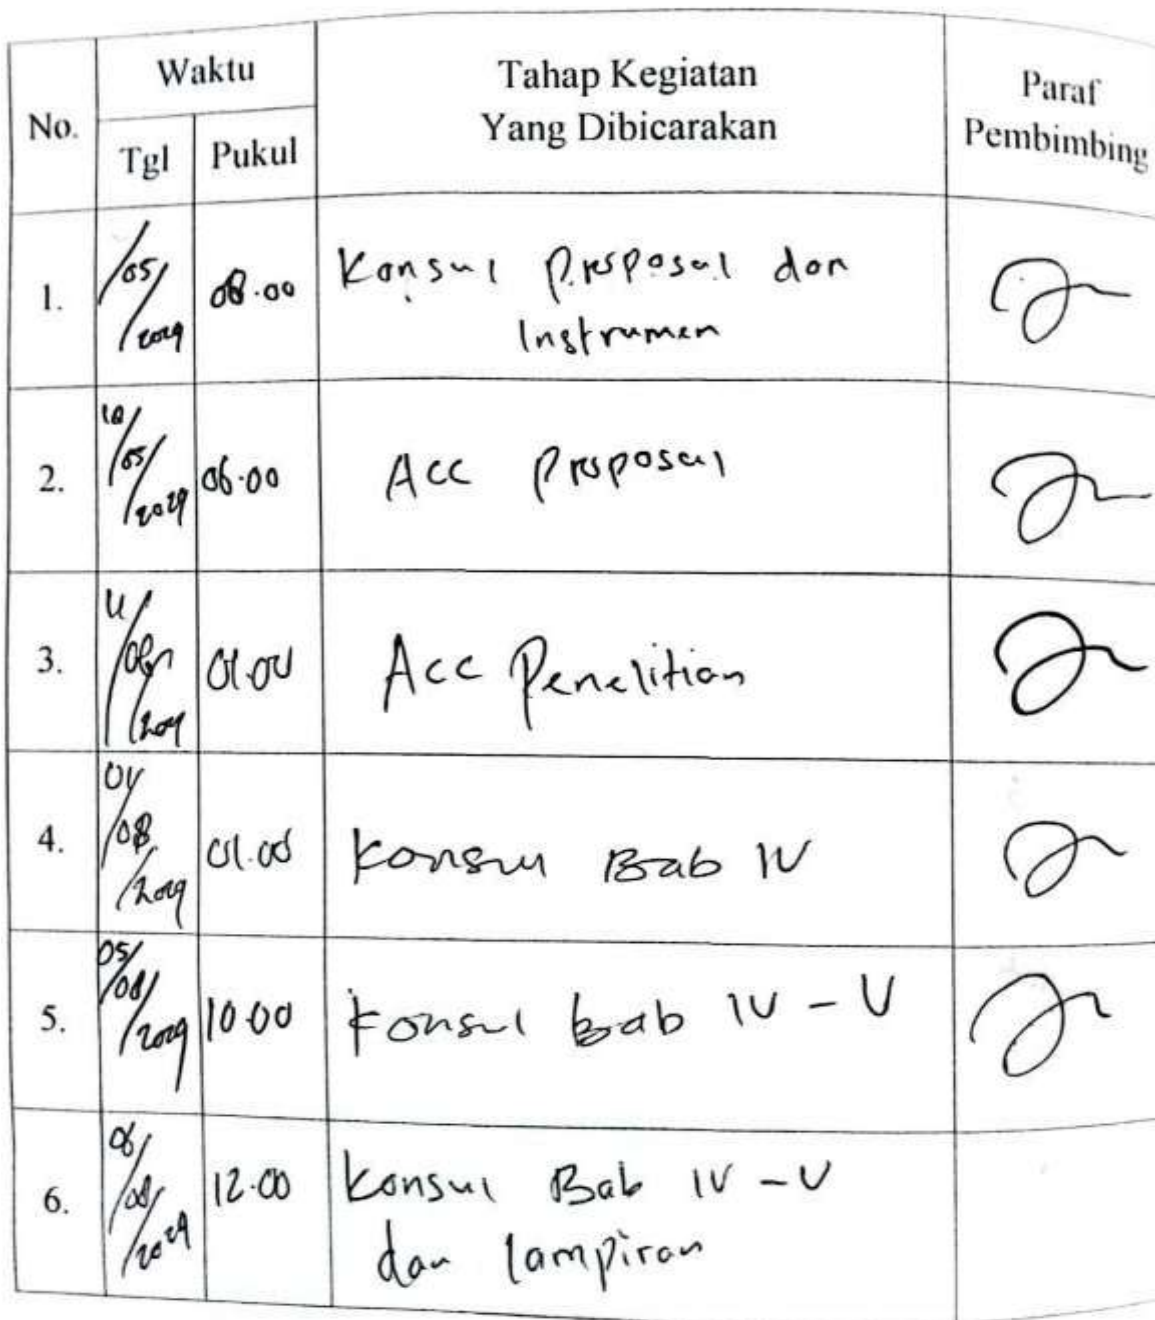 No.
Waktu
Tgl
Pukul
Tahap Kegiatan
Yang Dibicarakan
Paraf
Pembimbing
1.
/05/
08.00
Konsul Proposal dan
Instrumen
2.
/05/
06.00
Acc Proposal
3.
01.00
Acc Penelitian
4.
/08/
01.00
Konsul Bab IV
5.
05/08/
10.00
Konsul Bab IV - V
6.
06/08/
2024
12.00
Konsul Bab IV - V
dan lampiran